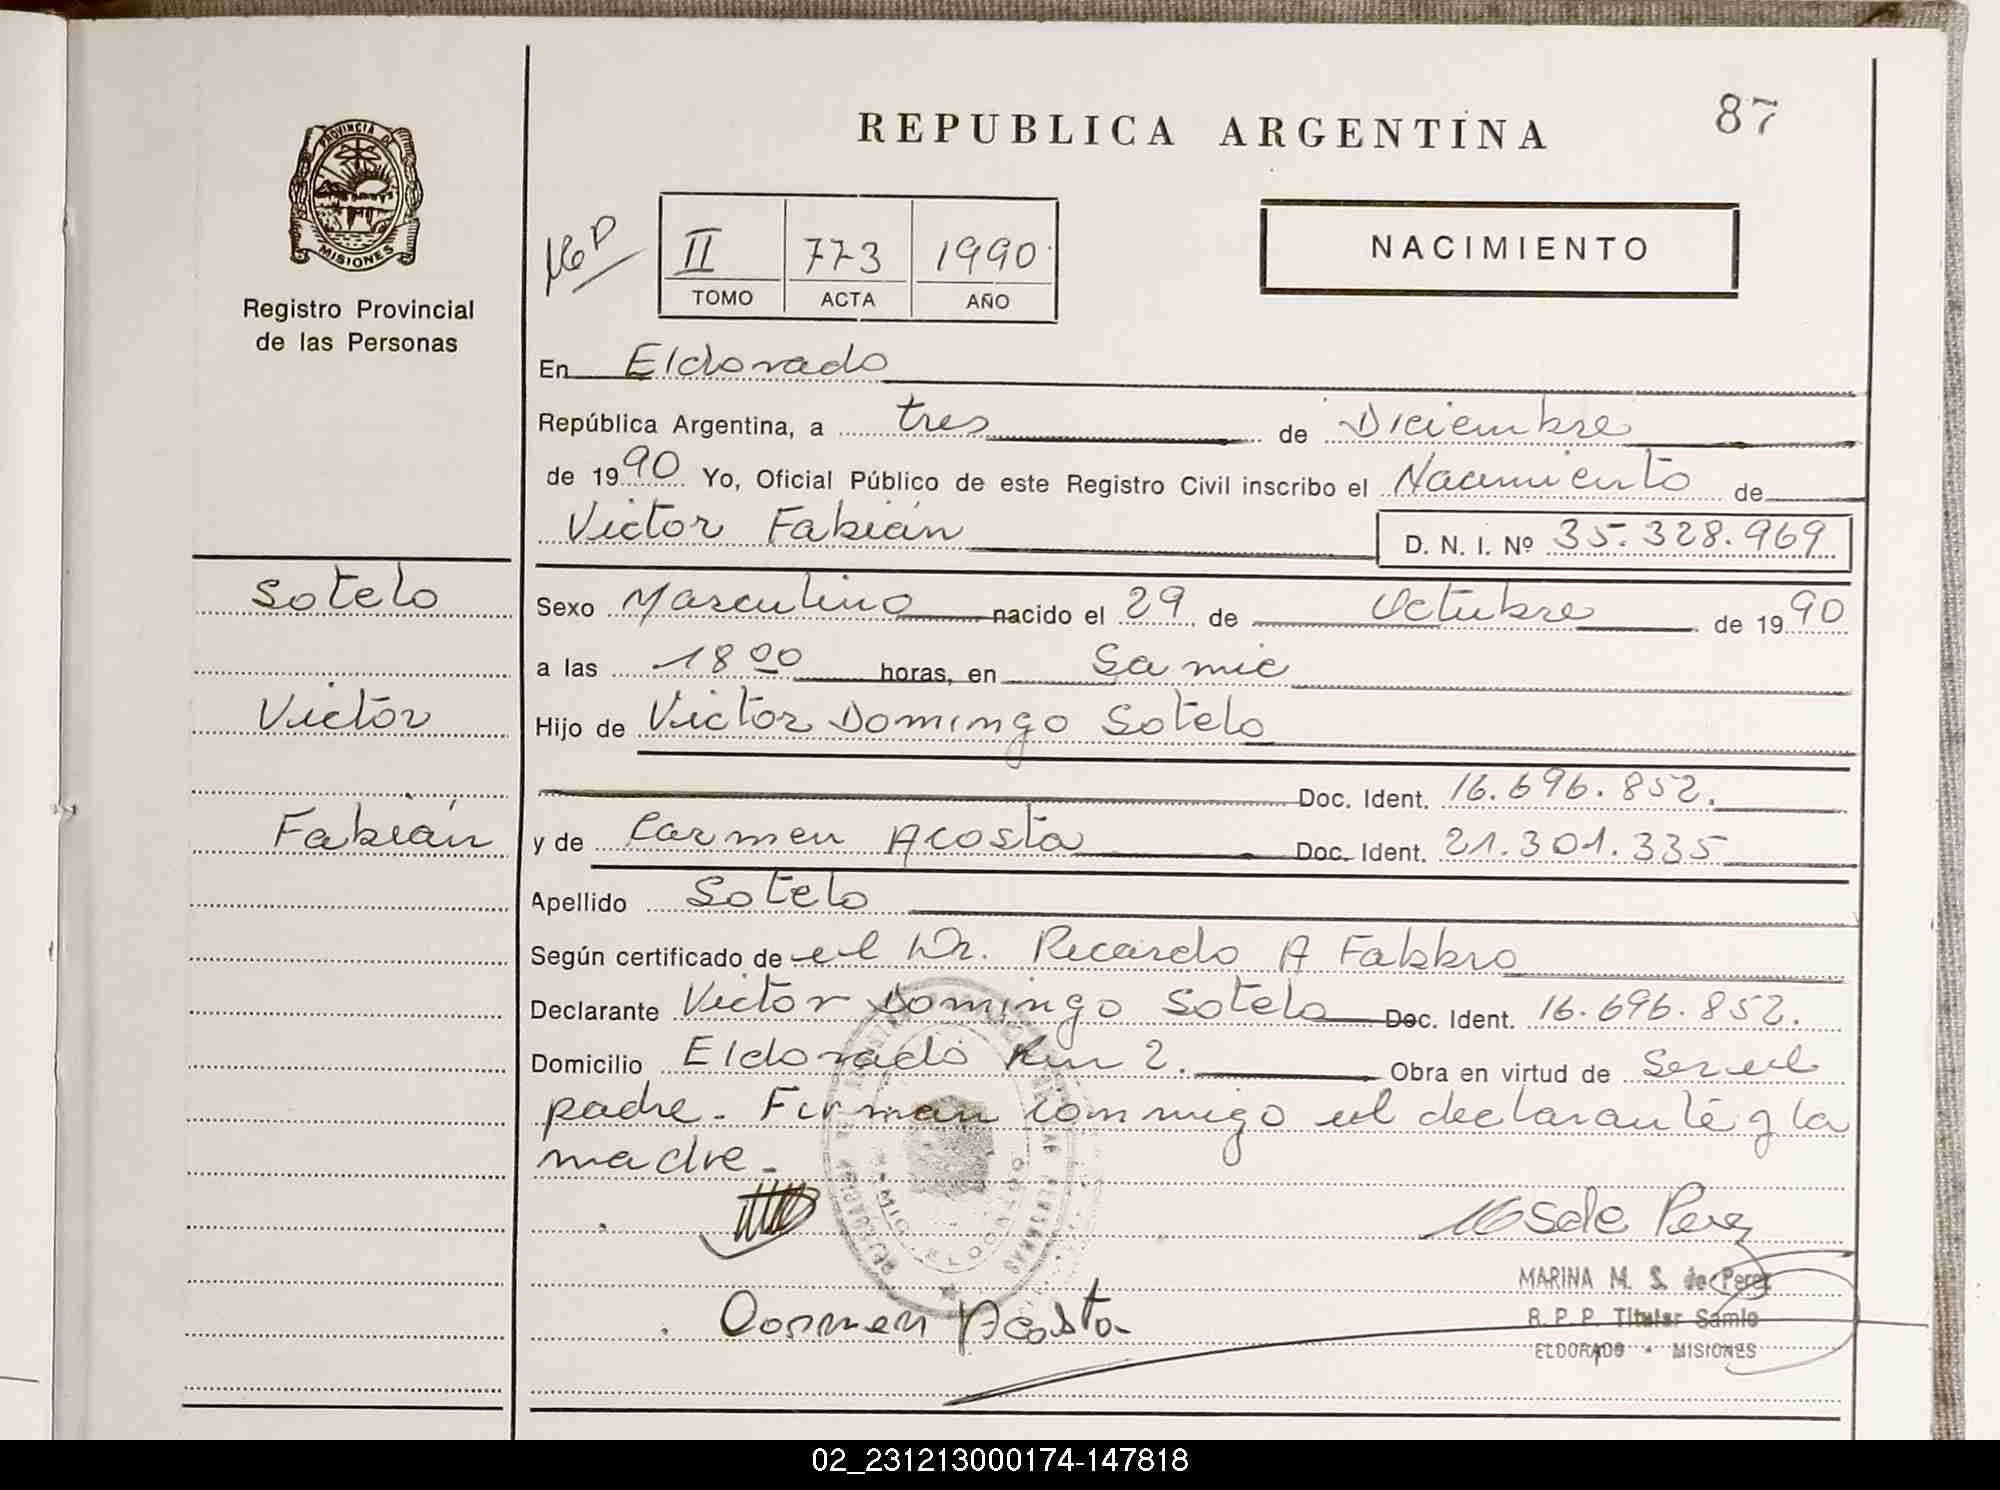 87
REPUBLICA ARGENTINA
PROVINCIA DE
MISIONES
Registro Provincial
de las Personas
II 773 1990
TOMO ACTA AÑO
NACIMIENTO
En Eldorado
República Argentina, a tres de Diciembre
de 1990 Yo, Oficial Público de este Registro Civil inscribo el Nacimiento de
Victor Fabián D. N. I. Nº 35.328.969
Sotelo
Sexo Masculino nacido el 29 de Octubre de 1990
a las 18 00 horas, en Samic
Victor
Hijo de Victor Domingo Sotelo
Doc. Ident. 16.696.852.
Fabián
y de Carmen Acosta Doc. Ident. 21.301.335
Apellido Sotelo
Según certificado de el Dr. Ricardo A Fabbro
Declarante Victor Domingo Sotelo Doc. Ident. 16.696.852.
Domicilio Eldorado Km 2. Obra en virtud de Ser el
padre. Firman conmigo el declarante y la
madre.
de Perez
MARINA M. S. de Perez
R. P. P. Titular Samic
ELDORADO - MISIONES
Carmen Acosta
02_231213000174-147818